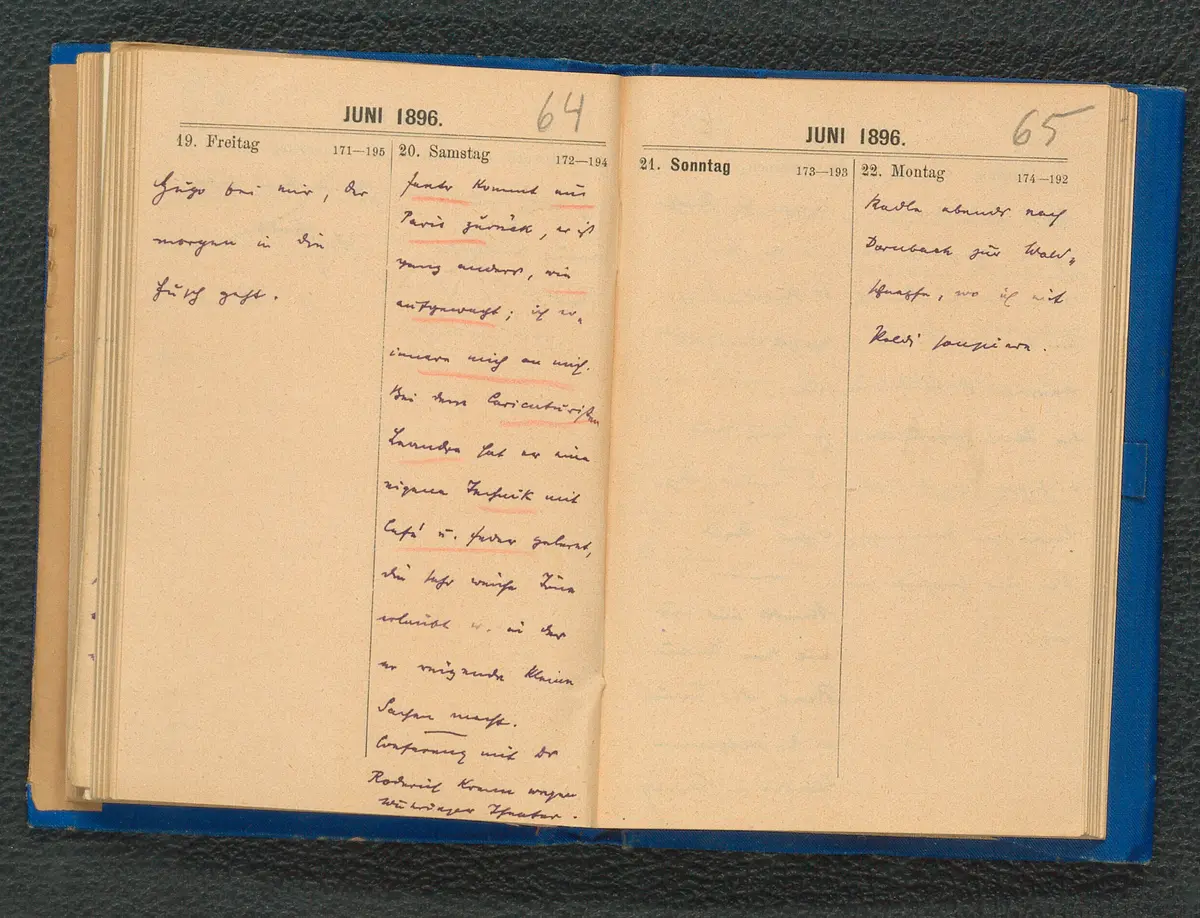 JUNI 1896.
64
19. Freitag
171—195
Hugo bei mir, der
morgen in die
Fusch geht.
20. Samstag
172—194
kommt aus
Paris zurück, er ist
ganz anders, wie
aufgewacht; ich er-
innere mich an mich.
Bei dem Caricaturisten
Leandre hat er eine
eigene Technik mit
Café u. Feder gelernt,
die sehr weiche Töne
erlaubt u. in der
er reizende kleine
Sachen macht.
Conferenz mit Dr
Roderich Krenn wegen
Theater.
JUNI 1896.
65
21. Sonntag
173—193
22. Montag
174—192
Radle abends nach
Dornbach zur Wald-
schnepfe, wo ich mit
Poldi soupiere.